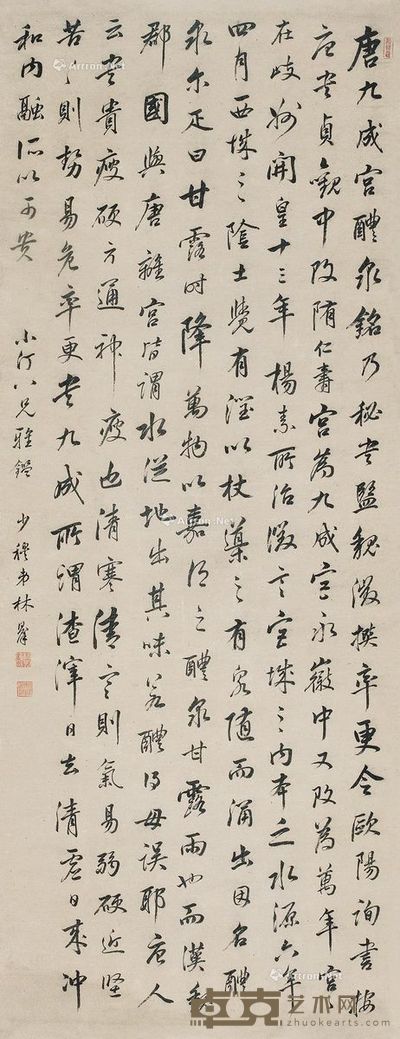 唐九成宫醴泉銘乃秘書監魏徵撰率更令歐陽詢書按
唐書貞觀中改隋仁壽宫為九成宫永徽中又改為萬年宫
在岐州開皇十三年楊素所治徵言宫城之内本乏水源六年
四月西城之陰土覺有潤以杖導之有泉随而涌出因名醴
泉尔疋曰甘露時降萬物以嘉謂之醴泉甘露雨也而漢
郡國與唐離宫皆謂水從地出其味若醴得毋误耶唐人
云書貴瘦硬方通神瘦也清寒清寒則氣易弱硬近堅
苦則势易危率更書九成所謂渣滓日去清虚日来冲
和内融所以可贵
小汀八兄雅鑑
少穆弟林
Artron.net
卓克艺术网
zhuokearts.com